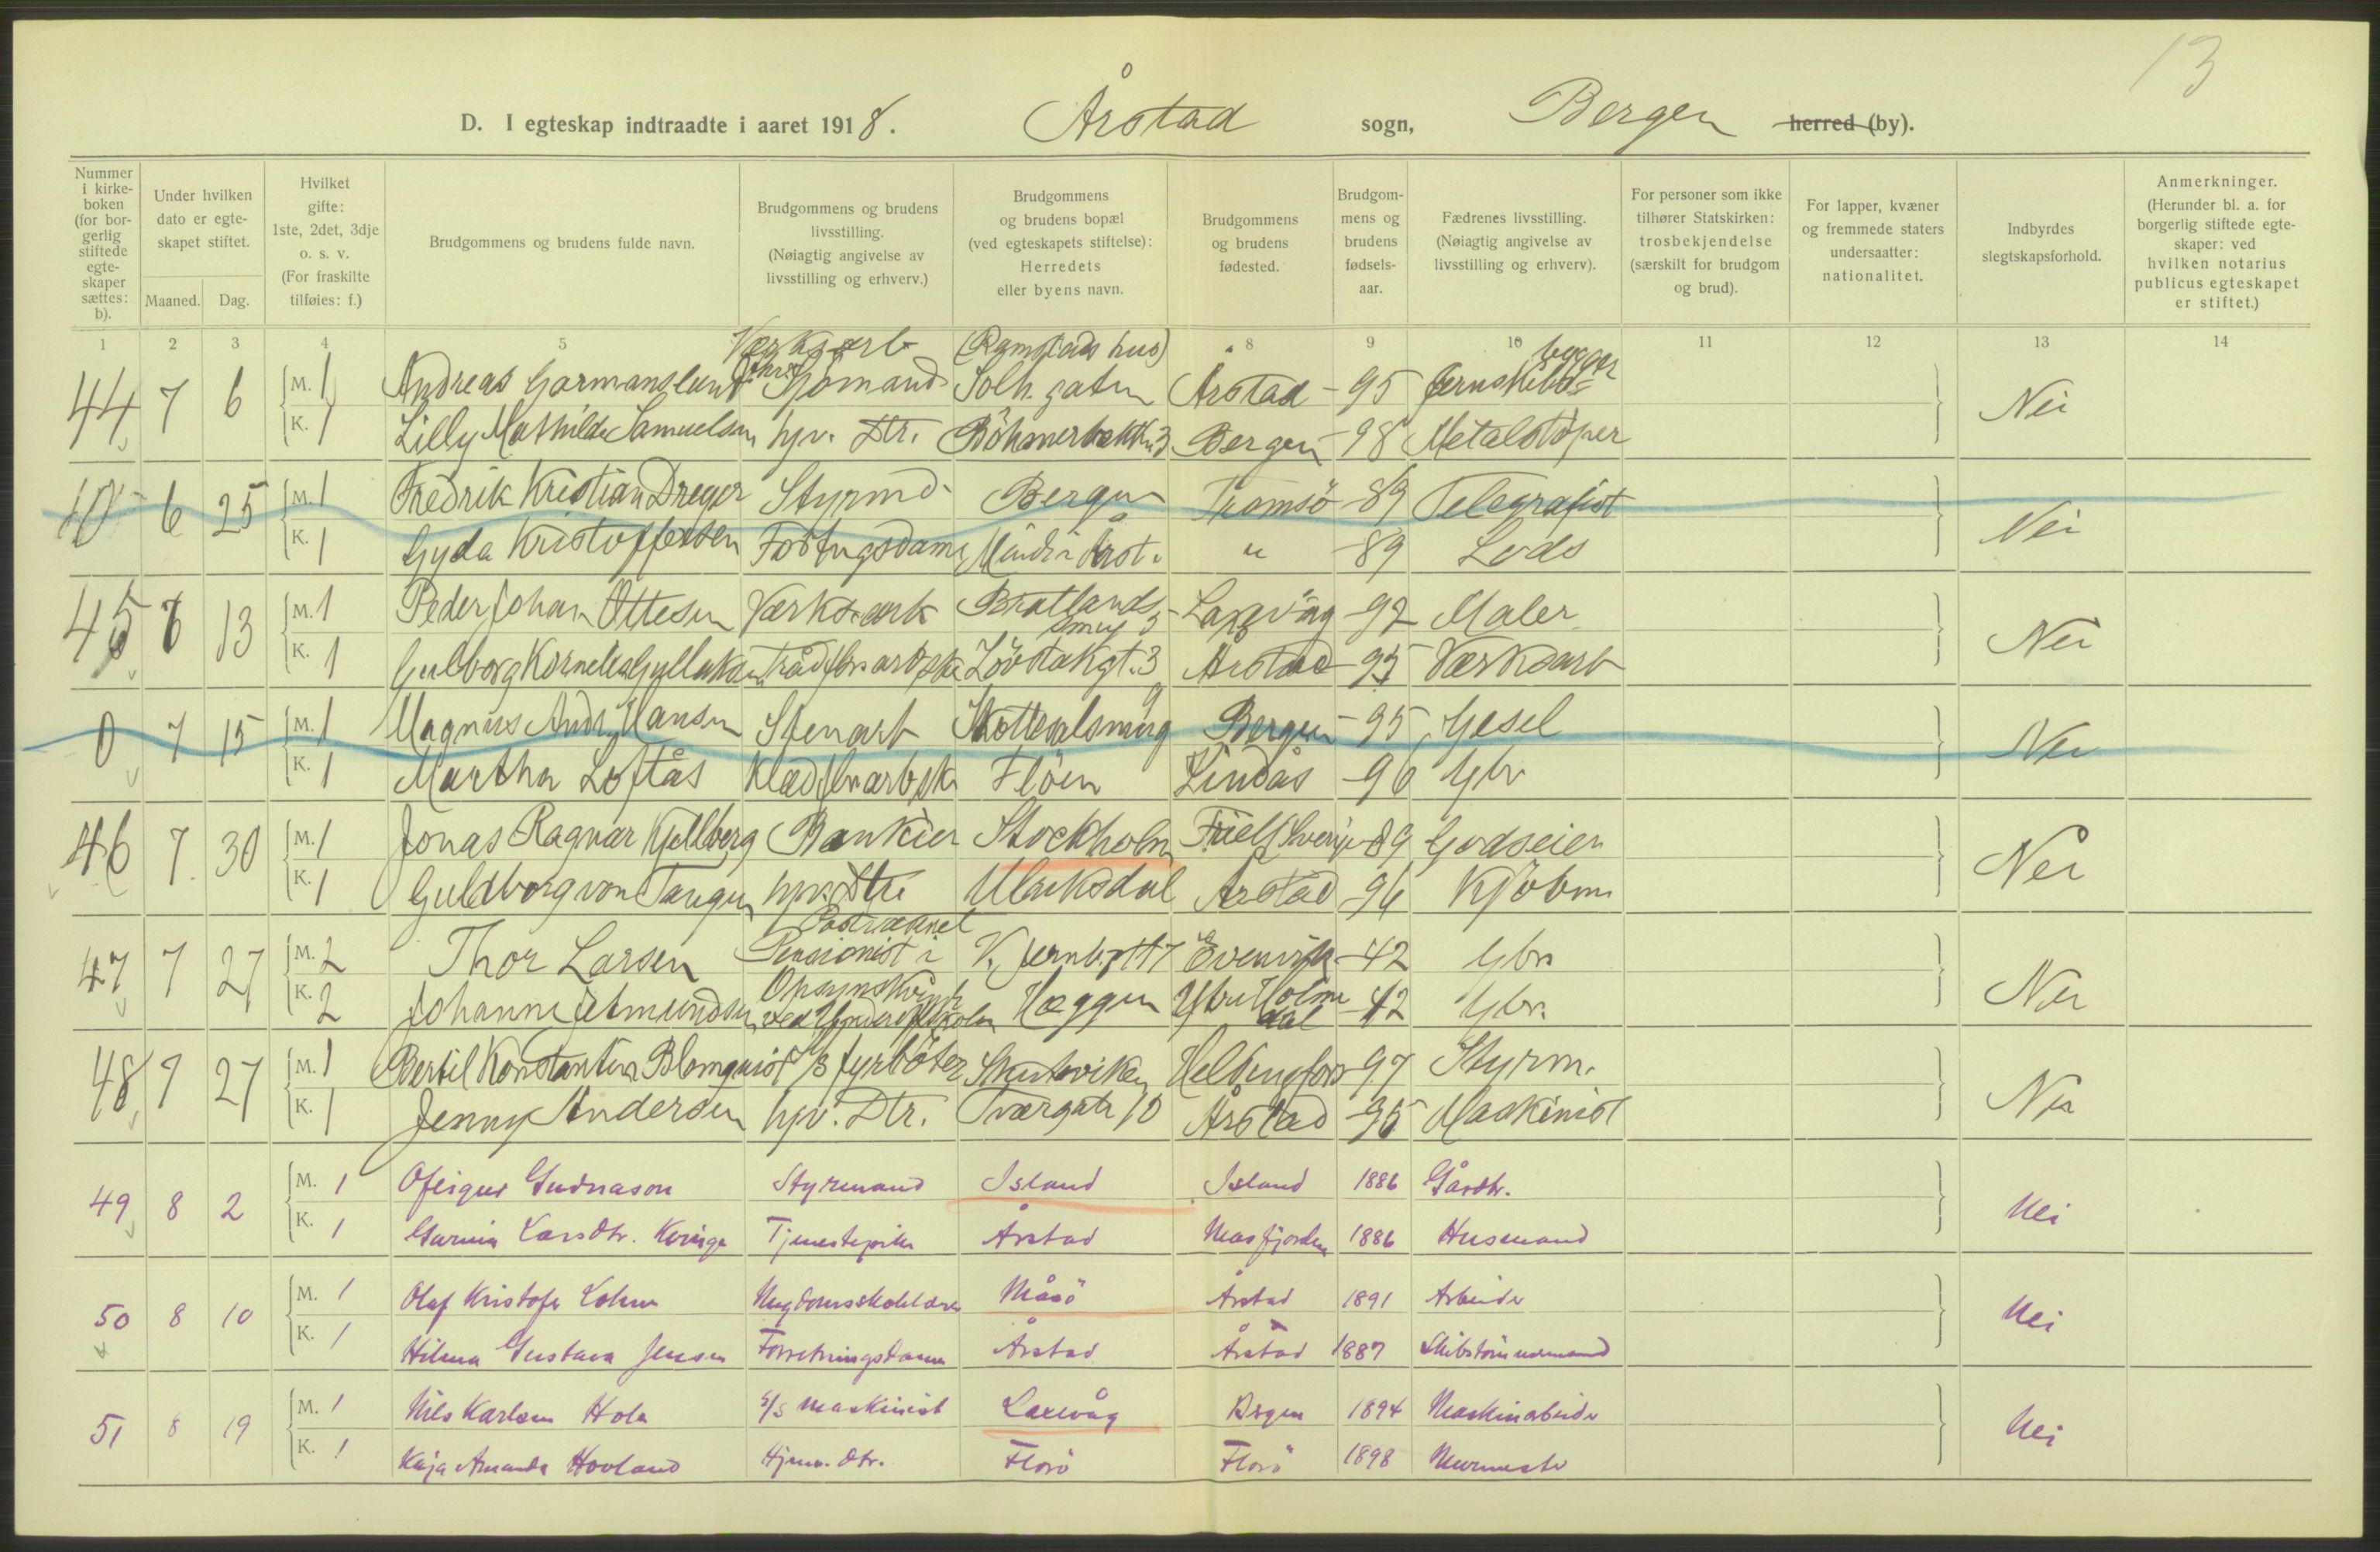 13
D. I egteskap indtraadte i aaret 1918. Årstad sogn, Bergen herred (by).
Nummer i kirkeboken (for borgerlig stiftede egteskaper sættes: b).
Under hvilken dato er egteskapet stiftet.
Maaned. Dag.
Hvilket gifte: 1ste, 2det, 3dje o. s. v. (For fraskilte tilføies: f.)
Brudgommens og brudens fulde navn.
Brudgommens og brudens livsstilling. (Nøiagtig angivelse av livsstilling og erhverv.)
Brudgommens og brudens bopæl (ved egteskapets stiftelse): Herredets eller byens navn.
Brudgommens og brudens fødested.
Brudgommens og brudens fødselsaar.
Fædrenes livsstilling. (Nøiagtig angivelse av livsstilling og erhverv).
For personer som ikke tilhører Statskirken: trosbekjendelse (særskilt for brudgom og brud).
For lapper, kvæner og fremmede staters undersaatter: nationalitet.
Indbyrdes slegtskapsforhold.
Anmerkninger. (Herunder bl. a. for borgerlig stiftede egteskaper: ved hvilken notarius publicus egteskapet er stiftet.)
1 2 3 4 5 8 9 10 11 12 13 14
Værksarb (Ramstads hus) bygger
44 7 6 M. 1 Andreas Garmanslund Sjömand Solh. gaten Årstad - 95 Jernskibs= Nei
K. 1 Lilly Mathilde Samuelsen hjv. Dtr. Böhmerbakkn 3 Bergen - 98 Metalstöper
6 25 M. 1 Fredrik Kristian Dreyer Styrmd Bergen Tromsö - 89 Telegrafist Nei
K. 1 Gyda Kristoffersen Årst. " - 89 Lods
45 7 13 M. 1 Peder Johan Ottesen Værksarb Bratlands- Laxevåg - 92 Maler Nei
smug 3
K. 1 Gulborg Kornelia Trådfbr. arbske Lövstakgt. 3 Årstad - 95 Værksarb
0 7 15 M. 1 Magnus Andr. Hansen Stenarb Skottesalsmug 9 Bergen - 95 Gesel Nei
K. 1 Martha Loftås Klædfbrarbske Flöen Lindås - 96 Gbr
46 7 30 M. 1 Jonas Ragnar Kjellberg Bankier Stockholm Sverige - 89 Godseier Nei
K. 1 Guldborg von Tangen hjv. Dtr Ulriksdal Årstad - 96 Kjöbm.
47 7 27 M. 2 Thor Larsen Pensionist i V. Jernb. gt 17 Evenvik - 42 Gbr. Nei
K. 2 Johanne Amundsen Hæggen Ytre Holmedal - 42 Gbr.
48 7 27 M. 1 Bertil Konstantin Blomquist S/S fyrböter Skuteviken Helsingfors - 97 Styrm. Nei
K. 1 Jenny Andersen hjv. Dtr. Tværgate 10 Årstad - 95 Maskinist
49 8 2 M. 1 Ofeigur Gudnason Styrmand Island Island 1886 Gårdbr. Nei
K. 1 Larsdtr. Kvinge Tjenestepike Årstad Masfjorden 1886 Husmand
50 8 10 M. 1 Olaf Kristofer Måsö Årstad 1891 Arbeider Nei
K. 1 Hilma Gustava Jensen Forretningsdame Årstad Årstad 1887 Skibstömmermand
51 8 19 M. 1 Nils Karlsen Hole S/S Maskinist Laxevåg Bergen 1894 Maskinarbeider Nei
K. 1 Kaja Amanda Hovland Hjemv. Dtr. Florö Florö 1898 Murmester